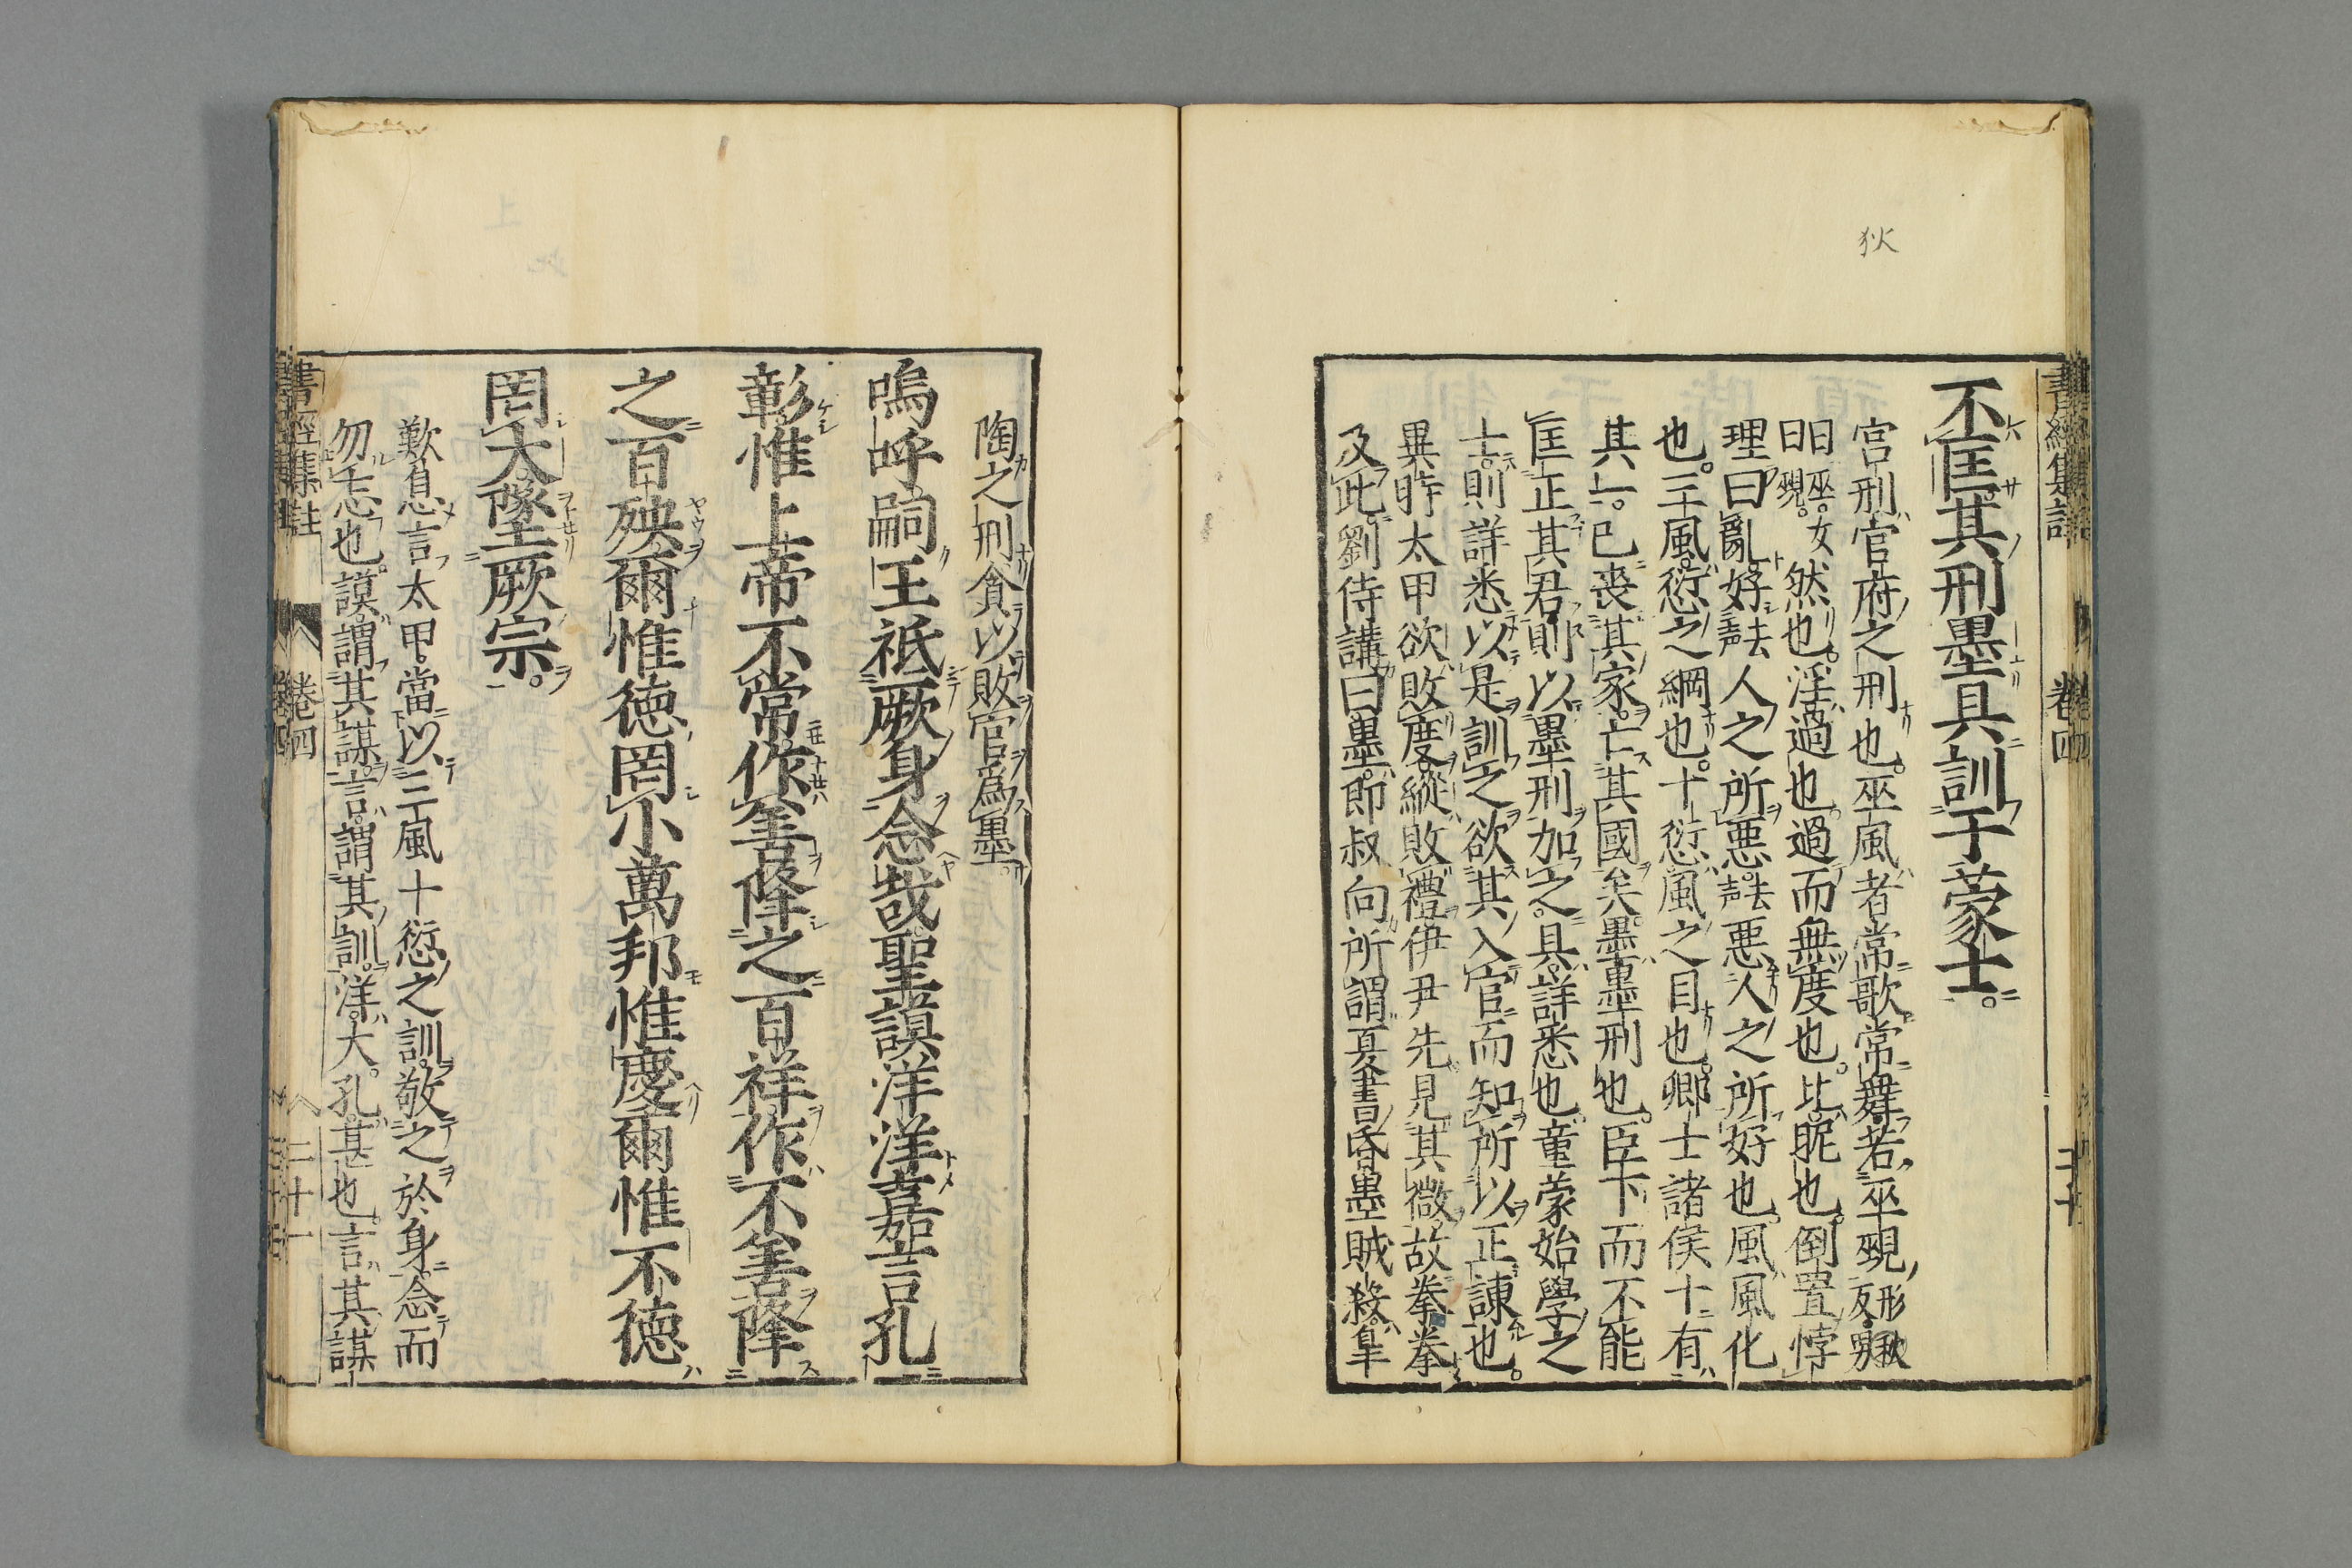 狄
書經集註 卷四 二十
不匡其刑墨具訓于蒙士。
宮刑官府之刑也。巫風者常歌常舞若巫覡
形狄反。男曰覡。女曰巫。然也。淫過也。過而無度也。比昵也。倒置悖
理曰亂好去声人之所惡。去声惡人之所好也。風風化
也。三風愆之綱也。十愆風之目也。卿士諸侯十有
其一。已喪其家。亡其國矣。墨墨刑也。臣下而不能
匡正其君則以墨刑加之。具詳悉也。童蒙始學之
士。則詳悉以是訓之欲其入官而知所以正諌也。
異時太甲欲敗度縱敗禮伊尹先見其微故拳拳
及此。劉侍講曰墨。即叔向所謂夏書昏墨賊殺。皐
陶之刑貪以敗官爲墨。
嗚呼嗣王祗厥身念哉聖謨洋洋嘉言孔
彰惟上帝不常作善降之百祥作不善降
之百殃爾惟德罔小萬邦惟慶爾惟不德
罔大墜厥宗。
歎息言太甲。當以三風十愆之訓。敬之於身念而
勿忘也。謨。謂其謀。言。謂其訓。洋。大。孔。甚也。言其謀
書經集註 卷四 二十一